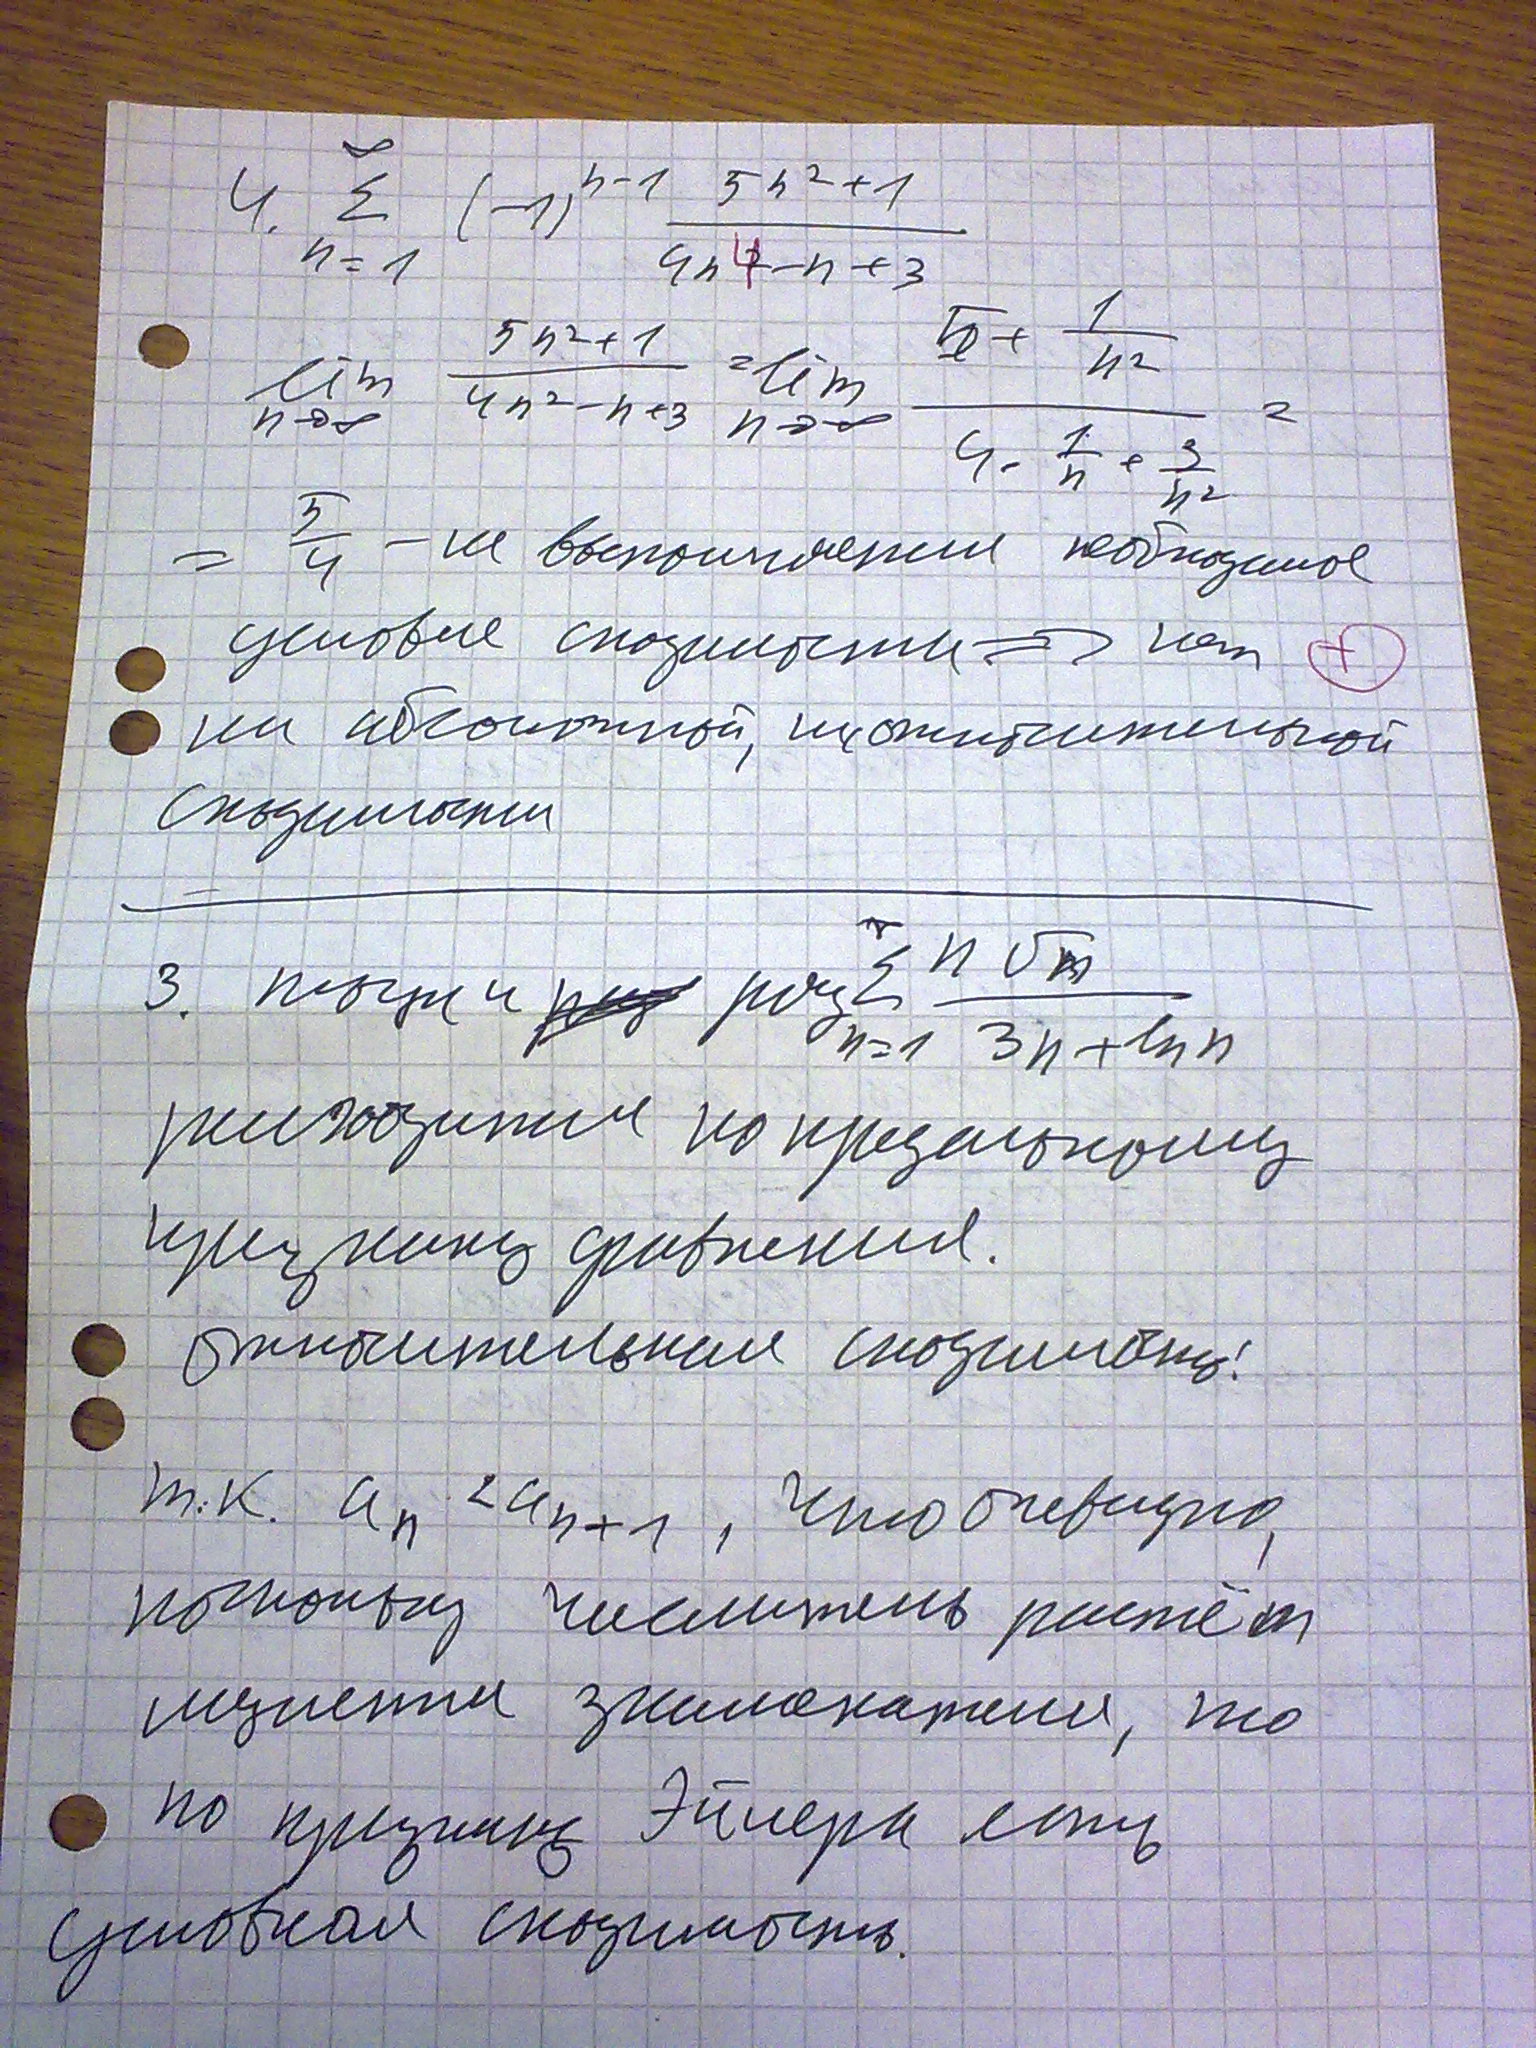 4. ∞ Σ n=1 (-1)^{n-1} \frac{5n²+1}{4n^4-n+3}
lim n→∞ \frac{5n²+1}{4n²-n+3} = lim n→∞ \frac{5+\frac{1}{n²}}{4-\frac{1}{n}+\frac{3}{n²}} =
= \frac{5}{4} - не выполняется необходимое
условие сходимости => нет +
ни абсолютной, ни относительной
сходимости
3. ряд ∞ Σ n=1 \frac{n}{3n+ln n}
расходится по предельному
признаку сравнения.
относительная сходимость:
т.к. a_n a_{n+1}, что очевидно,
поскольку числитель растёт
знаменателя, то
по признаку Эйлера есть
условная сходимость.